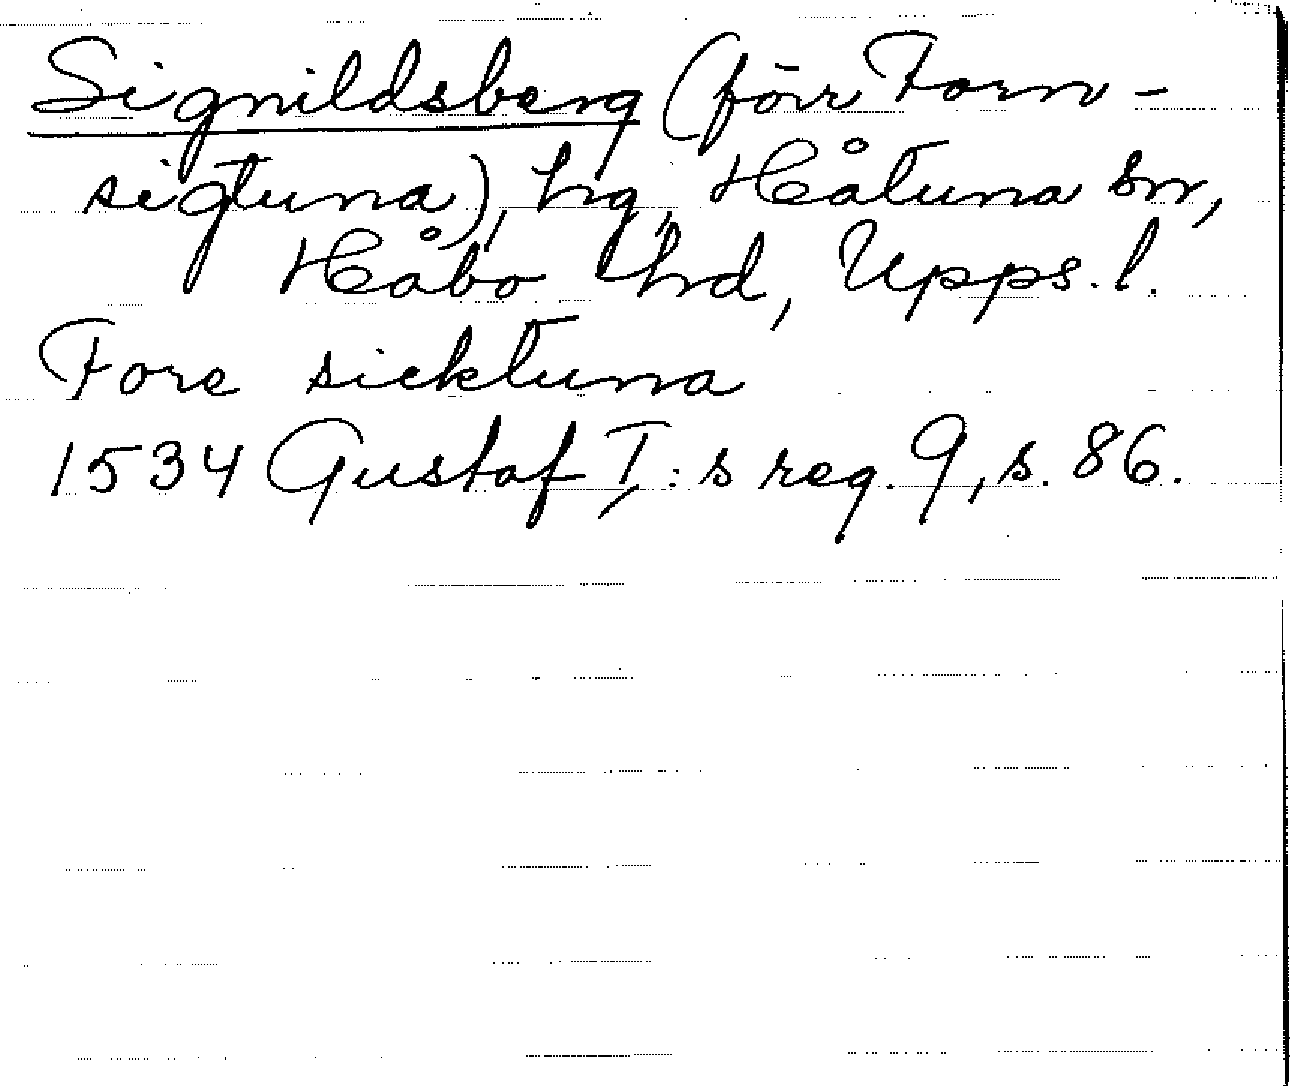 Signildsberg (förr Forn-
sigtuna), hg, Håtuna sn,
Håbo hd, Upps. l.
Fore sicktuna
1534 Gustaf I:s reg. 9, s. 86.